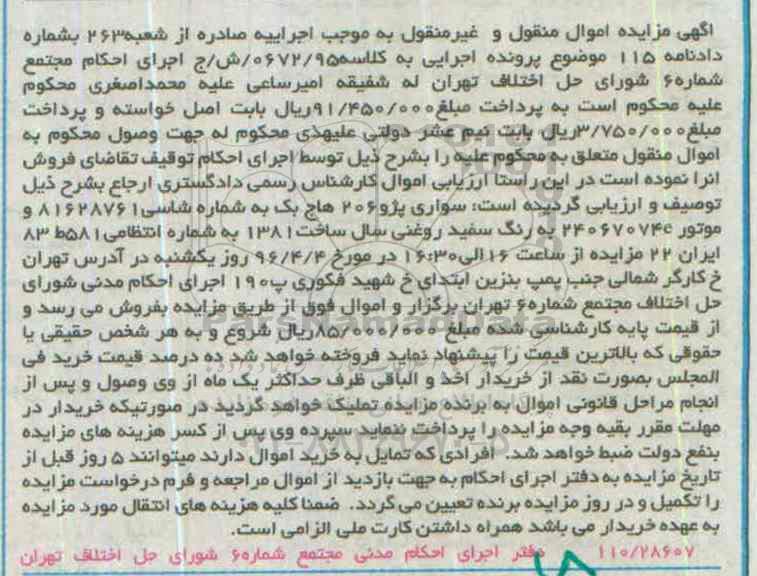 اگهی مزایده اموال منقول و غیرمنقول به موجب اجراییه صادره از شعبه۲۶۳ بشماره
دادنامه ۱۱۵ موضوع پرونده اجرایی به کلاسه۰۶۷۲/۹۵/ش/ج اجرای احکام مجتمع
شماره۶ شورای حل اختلاف تهران له شفیقه امیرساعی علیه محمداصغری محکوم
علیه محکوم است به پرداخت مبلغ۹۱/۴۵۰/۰۰۰ریال بابت اصل خواسته و پرداخت
مبلغ۳/۷۵۰/۰۰۰ریال بابت نیم عشر دولتی علیهذی محکوم له جهت وصول محکوم به
اموال منقول متعلق به محکوم علیه را بشرح ذیل توسط اجرای احکام توقیف تقاضای فروش
انرا نموده است در این راستا ارزیابی اموال کارشناس رسمی دادگستری ارجاع بشرح ذیل
توصیف و ارزیابی گردیده است: سواری پژو۲۰۶ هاچ بک به شماره شاسی۸۱۶۲۸۷۶۱ و
موتور ۲۴۰۶۷۰۷۴e به رنگ سفید روغنی سال ساخت۱۳۸۱ به شماره انتظامی۵۸۱ط ۸۳
ایران ۲۲ مزایده از ساعت ۱۶الی۱۶:۳۰ در مورخ ۹۶/۴/۴ روز یکشنبه در آدرس تهران
خ کارگر شمالی جنب پمپ بنزین ابتدای خ شهید فکوری پ۱۹۰ اجرای احکام مدنی شورای
حل اختلاف مجتمع شماره۶ تهران برگزار و اموال فوق از طریق مزایده بفروش می رسد و
از قیمت پایه کارشناسی شده مبلغ ۸۵/۰۰۰/۰۰۰ریال شروع و به هر شخص حقیقی یا
حقوقی که بالاترین قیمت را پیشنهاد نماید فروخته خواهد شد ده درصد قیمت خرید فی
المجلس بصورت نقد از خریدار اخذ و الباقی ظرف حداکثر یک ماه از وی وصول و پس از
انجام مراحل قانونی اموال به برنده مزایده تملیک خواهد گردید در صورتیکه خریدار در
مهلت مقرر بقیه وجه مزایده را پرداخت ننماید سپرده وی پس از کسر هزینه های مزایده
بنفع دولت ضبط خواهد شد. افرادی که تمایل به خرید اموال دارند میتوانند ۵ روز قبل از
تاریخ مزایده به دفتر اجرای احکام به جهت بازدید از اموال مراجعه و فرم درخواست مزایده
را تکمیل و در روز مزایده برنده تعیین می گردد. ضمنا کلیه هزینه های انتقال مورد مزایده
به عهده خریدار می باشد همراه داشتن کارت ملی الزامی است.
۱۱۰/۲۸۶۰۷ دفتر اجرای احکام مدنی مجتمع شماره۶ شورای حل اختلاف تهران